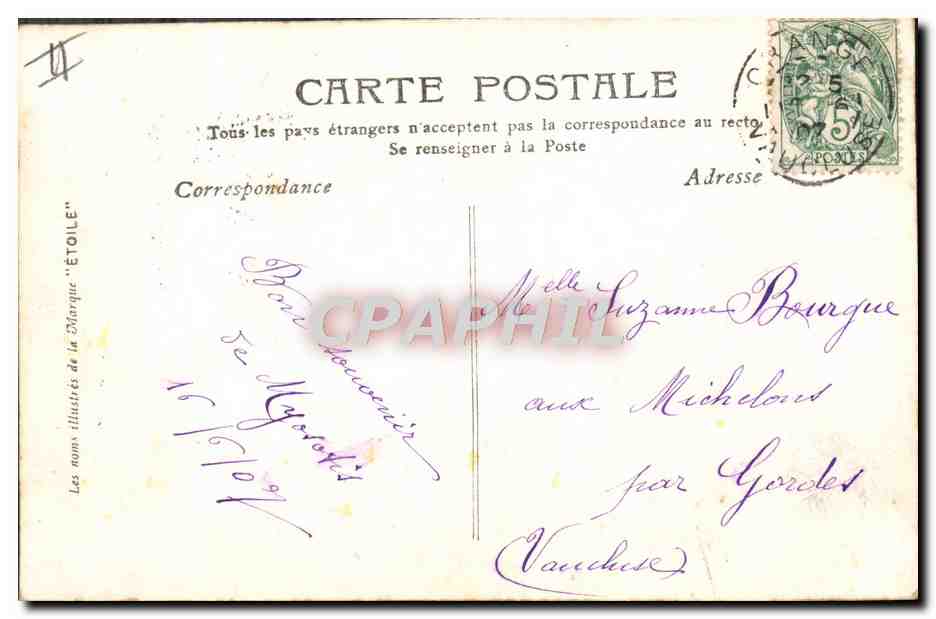 CARTE POSTALE
Tous les pays étrangers n'acceptent pas la correspondance au recto
Se renseigner à la Poste
Correspondance
Adresse
Les noms illustrés de la Marque "ÉTOILE"
Bon souvenir
de Myosotis
16/6/07
Melle Suzanne Bourgue
aux Michelons
par Gordes
(Vaucluse)
CPAPHIL
ORANGE
VAUCLUSE
07
5
POSTES